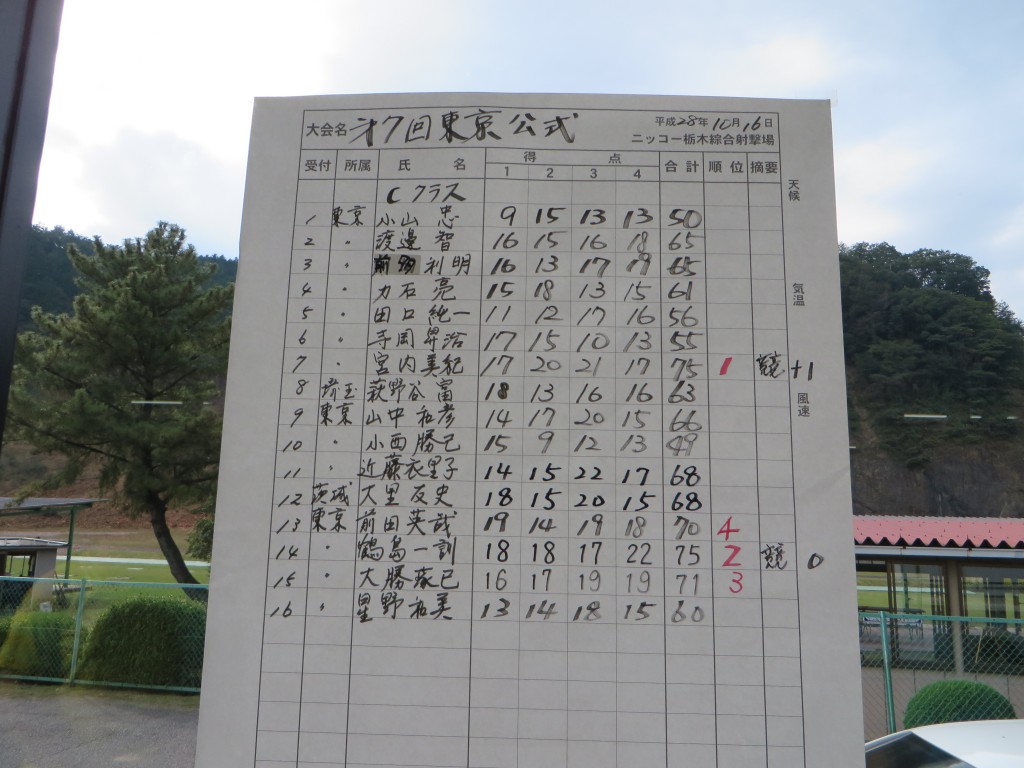 大会名 才7回東京公式 平成28年10月16日
ニッコー栃木綜合射撃場
受付 所属 氏名 得点 合計 順位 摘要
1 2 3 4
Cクラス
1 東京 小山 忠 9 15 13 13 50
2 〃 渡邊 智 16 15 16 18 65
3 〃 前場 利明 16 13 17 19 65
4 〃 力石 亮 15 18 13 15 61
5 〃 田口 純一 11 12 17 16 56
6 〃 寺岡 昇治 17 15 10 13 55
7 〃 宮内 美紀 17 20 21 17 75 1 競 +1
8 埼玉 萩野谷 富 18 13 16 16 63
9 東京 山中 和彦 14 17 20 15 66
10 〃 小西 勝己 15 9 12 13 49
11 〃 近藤衣里子 14 15 22 17 68
12 茨城 大里 友史 18 15 20 15 68
13 東京 前田 英哉 19 14 19 18 70 4
14 〃 鶴島 一訓 18 18 17 22 75 2 競 0
15 〃 大勝 琢已 16 17 19 19 71 3
16 〃 星野 和美 13 14 18 15 60
天候
気温
風速